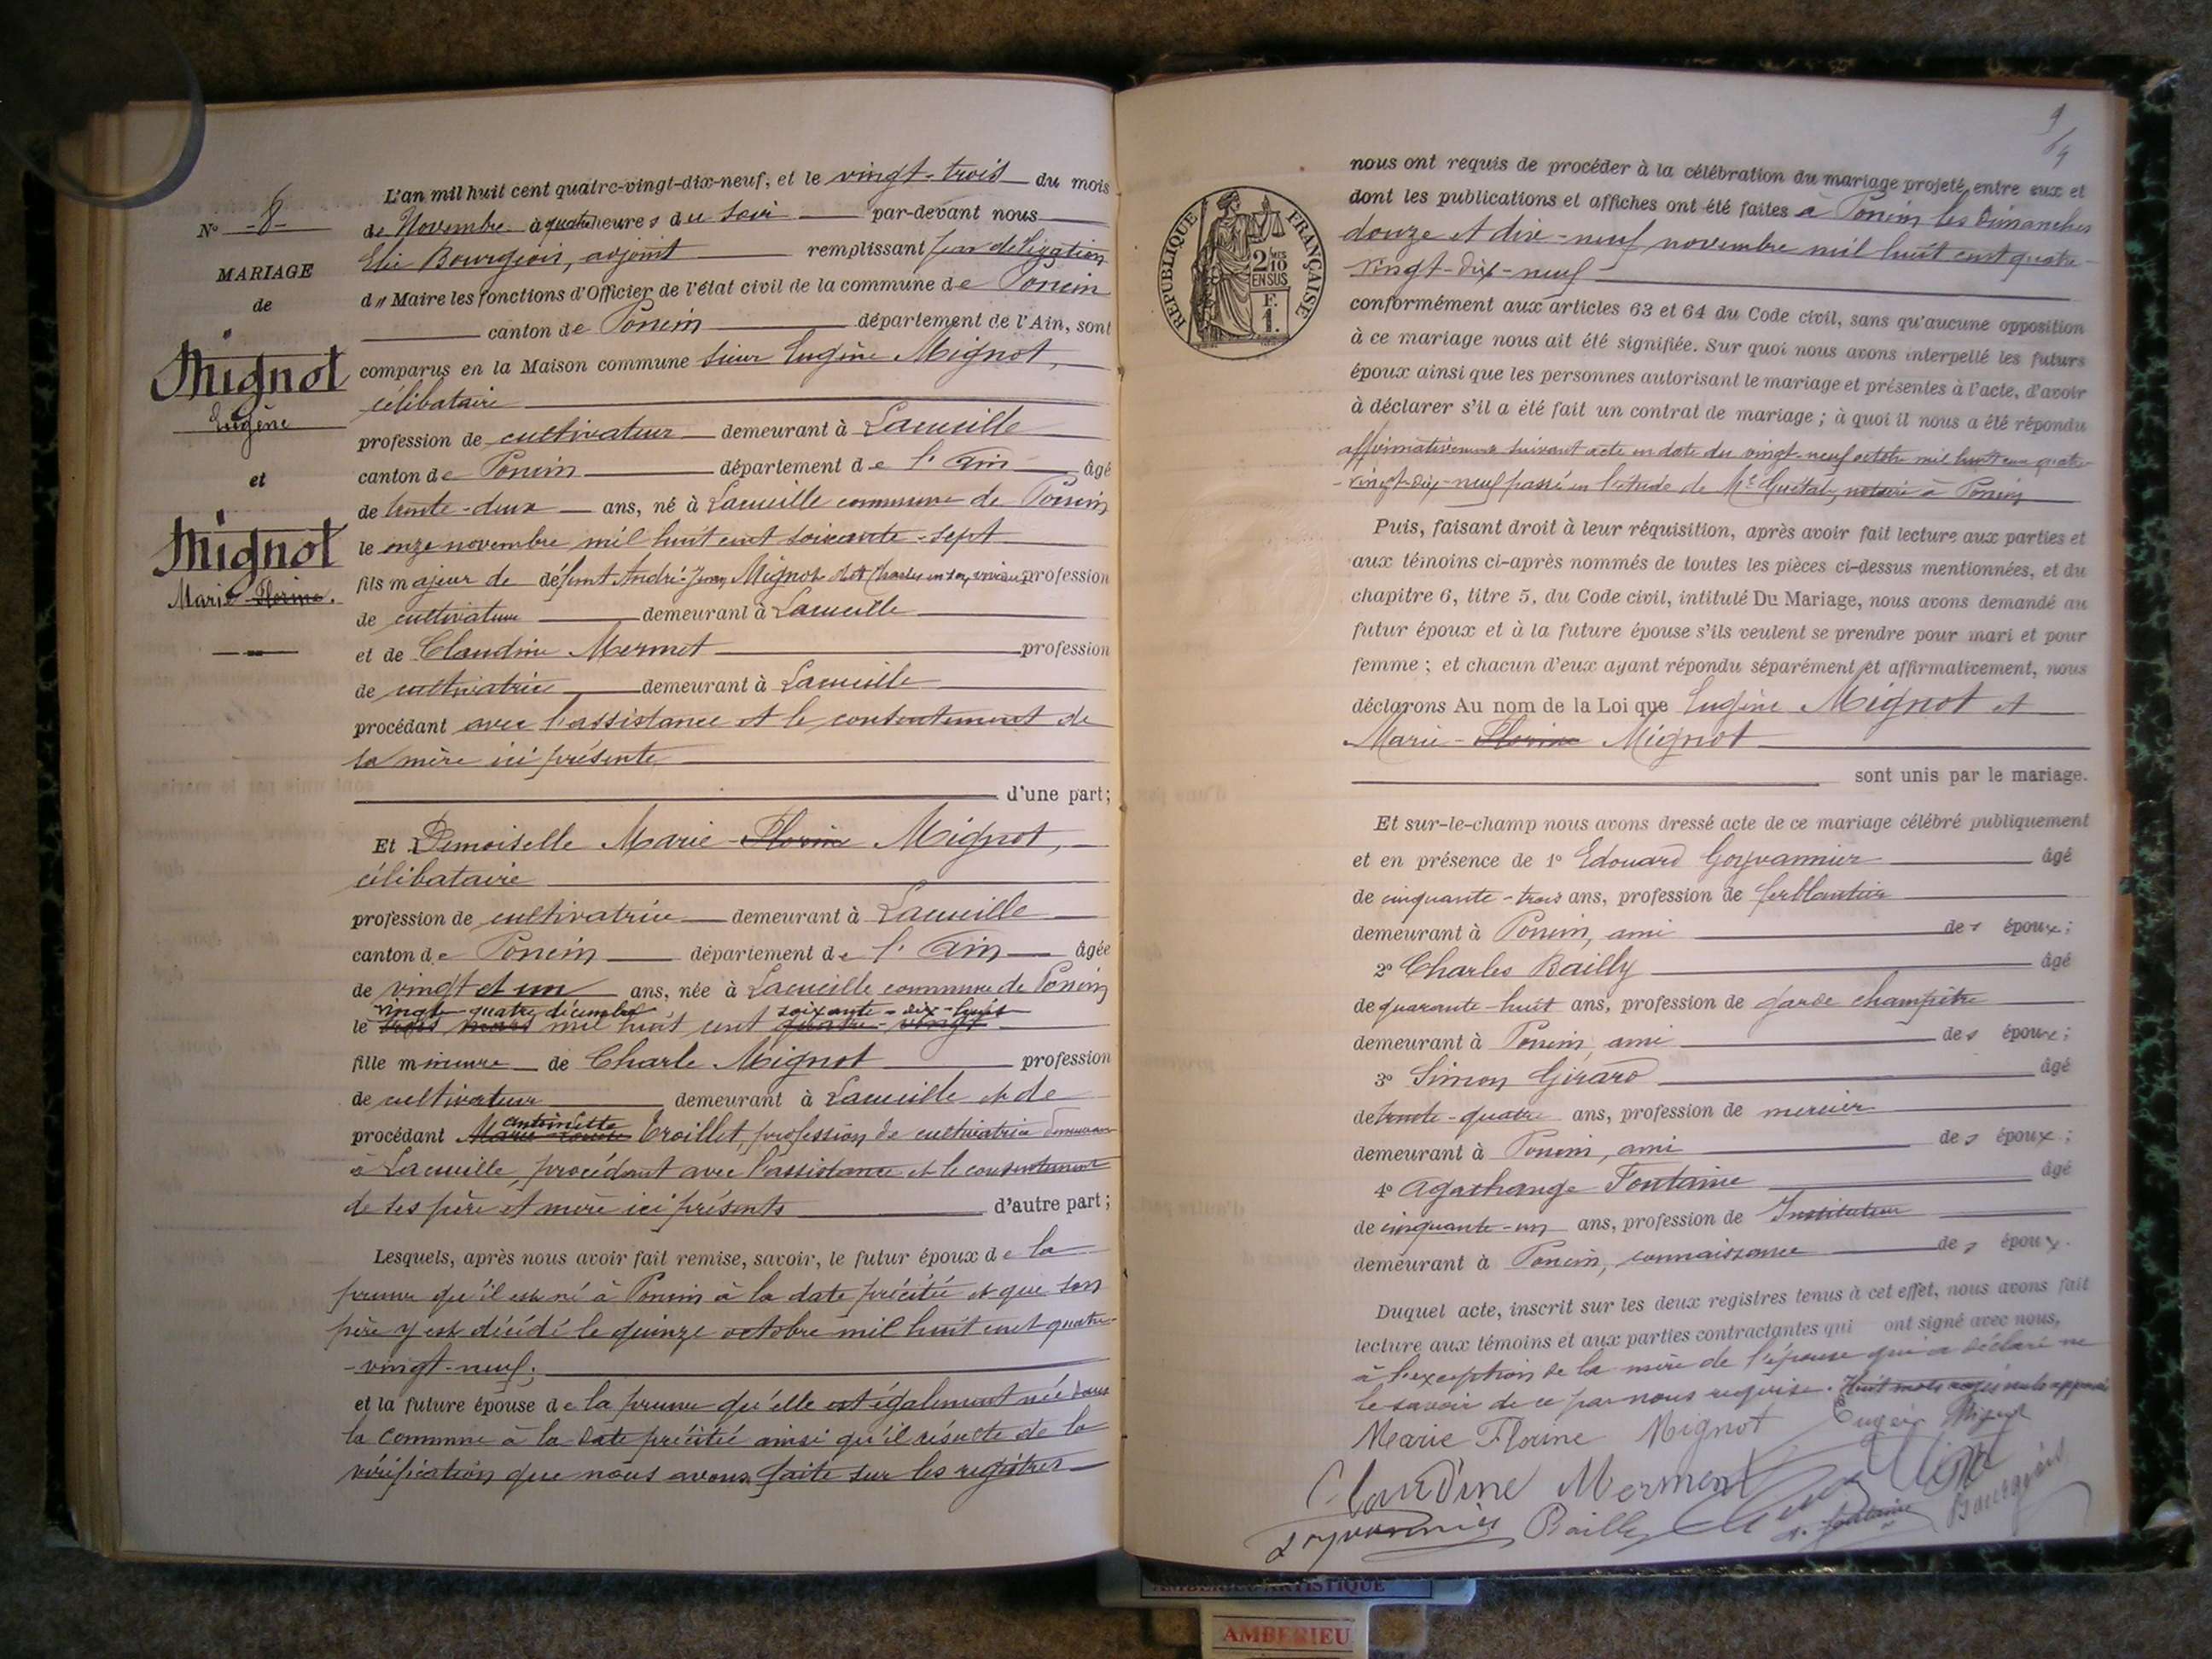 L'an mil huit cent quatre-vingt-dix-neuf, et le vingt-trois du mois
N° -8-
de Novembre à quatre heures du soir par-devant nous
Elie Bourgeois, adjoint remplissant par délégation
MARIAGE
de
d" Maire les fonctions d'Officier de l'état civil de la commune de Poncin
canton de Poncin département de l'Ain, sont
Mignot
Eugène
comparus en la Maison commune sieur Eugène Mignot,
célibataire
profession de cultivateur demeurant à Lacueille
et
canton de Poncin département de l'Ain âgé
de trente-deux ans, né à Lacueille commune de Poncin
Mignot
Marie-Florine.
le onze novembre mil huit cent soixante-sept
fils majeur de défunt André-Jean Mignot dit Charles en son vivant profession
de cultivateur demeurant à Lacueille
et de Claudine Mermet profession
de cultivatrice demeurant à Lacueille
procédant avec l'assistance et le consentement de
sa mère ici présente
d'une part;
Et Demoiselle Marie-Florine Mignot,
célibataire
profession de cultivatrice demeurant à Lacueille
canton de Poncin département de l'Ain âgée
de vingt et un ans, née à Lacueille commune de Poncin
vingt-quatre décembre soixante-dix-huit
le trois mars mil huit cent quatre-vingt
fille mineure de Charle Mignot profession
de cultivateur demeurant à Lacueille et de
antoinette
procédant Marie-Louise Troillet, profession de cultivatrice demeurant
à Lacueille, procédant avec l'assistance et le consentement
de ses père et mère ici présents d'autre part;
Lesquels, après nous avoir fait remise, savoir, le futur époux de la
preuve qu'il est né à Poncin à la date précitée et que son
père y est décédé le quinze octobre mil huit cent quatre-
-vingt-neuf;
et la future épouse de la preuve qu'elle est également née dans
la commune à la date précitée ainsi qu'il résulte de la
vérification que nous avons faite sur les registres
9
REPUBLIQUE FRANÇAISE
2 MES
10
EN SUS
F.
1.
nous ont requis de procéder à la célébration du mariage projeté entre eux et
dont les publications et affiches ont été faites à Poncin les Dimanches
douze et dix-neuf novembre mil huit cent quatre-
vingt-dix-neuf
conformément aux articles 63 et 64 du Code civil, sans qu'aucune opposition
à ce mariage nous ait été signifiée. Sur quoi nous avons interpellé les futurs
époux ainsi que les personnes autorisant le mariage et présentes à l'acte, d'avoir
à déclarer s'il a été fait un contrat de mariage; à quoi il nous a été répondu
affirmativement suivant acte en date du vingt-neuf octobre mil huit cent quatre-
-vingt-dix-neuf passé en l'étude de Me Guetat, notaire à Poncin
Puis, faisant droit à leur réquisition, après avoir fait lecture aux parties et
aux témoins ci-après nommés de toutes les pièces ci-dessus mentionnées, et du
chapitre 6, titre 5, du Code civil, intitulé Du Mariage, nous avons demandé au
futur époux et à la future épouse s'ils veulent se prendre pour mari et pour
femme; et chacun d'eux ayant répondu séparément et affirmativement, nous
déclarons Au nom de la Loi que Eugène Mignot et
Marie-Florine Mignot
sont unis par le mariage.
Et sur-le-champ nous avons dressé acte de ce mariage célébré publiquement
et en présence de 1° Edouard Goyvannier âgé
de cinquante-trois ans, profession de ferblantier
demeurant à Poncin, ami des époux;
2° Charles Bailly âgé
de quarante-huit ans, profession de garde champêtre
demeurant à Poncin ami des époux;
3° Simon Girard âgé
de trente-quatre ans, profession de mercier
demeurant à Poncin, ami des époux;
4° Agathange Fontaine âgé
de cinquante-un ans, profession de Instituteur
demeurant à Poncin, connaissance des époux.
Duquel acte, inscrit sur les deux registres tenus à cet effet, nous avons fait
lecture aux témoins et aux parties contractantes qui ont signé avec nous,
à l'exception de la mère de l'épouse qui a déclaré ne
le savoir de ce par nous requise. Huit mots rayés nuls approuvés
Marie Florine Mignot Eugène Mignot
Claudine Mermont
Goyvannier Bailly A. Fontaine Bourgeois
AMBERIEU ARTISTIQUE
AMBERIEU